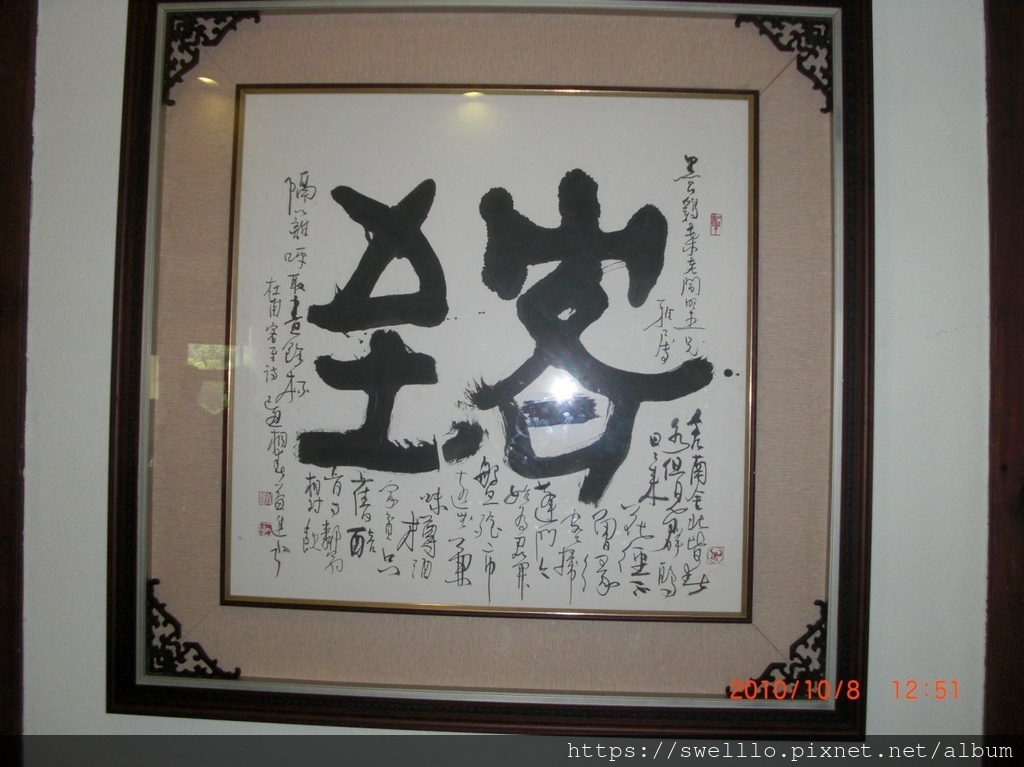 雅屬
客至
舍南舍北皆春
水但見群鷗
日日來
花徑不
曾緣
客掃
蓬門今
始為君開
盤飧市
遠無兼
味樽酒
家貧只
舊醅
肯與鄰翁
相對飲
隔籬呼取盡餘杯
杜甫客至詩
2010/10/8 12:51
https://swelllo.pixnet.net/album